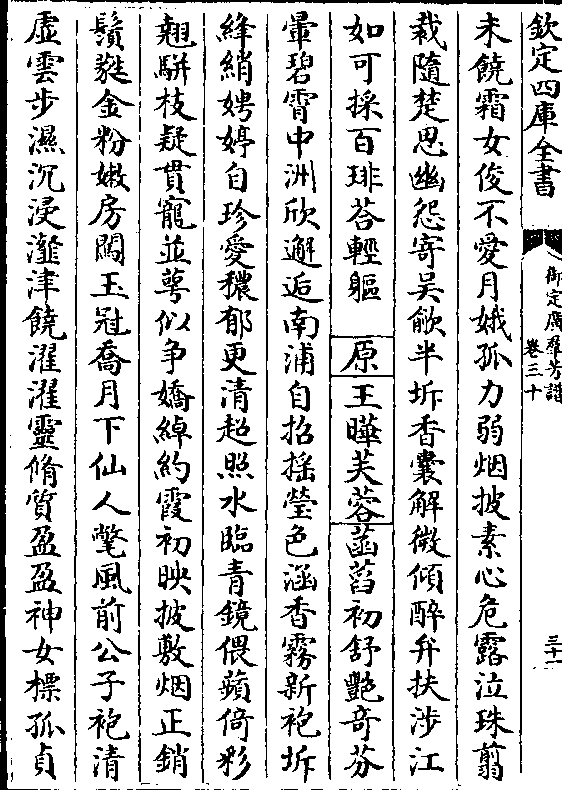 欽定四庫全書
御定廣羣芳譜
卷三十
三十一
未饒霜女俊不愛月娥孤力弱烟披素心危露泣珠翦
裁隨楚思幽怨寄吳歈半坼香囊解微傾醉弁扶涉江
如可採百琲荅輕軀 原 王曄芙蓉菡萏初舒艷奇芬
暈碧霄中洲欣邂逅南浦自招摇瑩色涵香霧新袍坼
絳綃娉婷自珍愛穠郁更清超照水臨青鏡偎蘋倚彩
翹駢枝疑貫寵並萼似争嬌綽約霞初映披敷烟正銷
鬚蕤金粉嫩房闊玉冠喬月下仙人氅風前公子袍清
虛雲步濕沉浸灉津饒濯濯靈脩質盈盈神女標孤貞